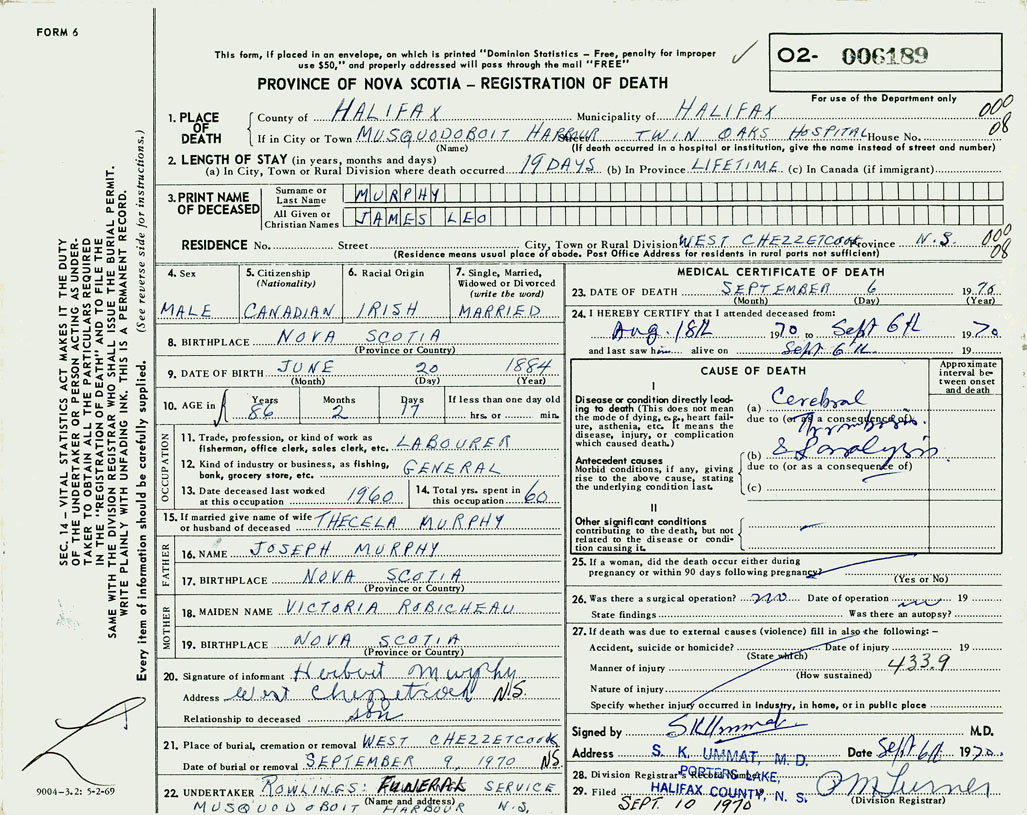 FORM 6
This form, if placed in an envelope, on which is printed "Dominion Statistics – Free, penalty for improper
use $50," and properly addressed will pass through the mail "FREE"
O2- 006189
PROVINCE OF NOVA SCOTIA – REGISTRATION OF DEATH
For use of the Department only
1. PLACE OF DEATH
County of HALIFAX Municipality of HALIFAX 000
If in City or Town MUSQUODOBOIT HARBOUR TWIN OAKS HOSPITAL House No. 08
(Name) (If death occurred in a hospital or institution, give the name instead of street and number)
2. LENGTH OF STAY (in years, months and days)
(a) In City, Town or Rural Division where death occurred 19 DAYS (b) In Province LIFETIME (c) In Canada (if immigrant)
3. PRINT NAME OF DECEASED
Surname or Last Name MURPHY
All Given or Christian Names JAMES LEO
RESIDENCE No. Street City, Town or Rural Division WEST CHEZZETCOOK Province N.S. 000
(Residence means usual place of abode. Post Office Address for residents in rural parts not sufficient) 08
4. Sex
MALE
5. Citizenship (Nationality)
CANADIAN
6. Racial Origin
IRISH
7. Single, Married, Widowed or Divorced (write the word)
MARRIED
8. BIRTHPLACE NOVA SCOTIA
(Province or Country)
9. DATE OF BIRTH JUNE 20 1884
(Month) (Day) (Year)
10. AGE in Years Months Days If less than one day old
86 2 17 hrs. or min.
OCCUPATION
11. Trade, profession, or kind of work as
fisherman, office clerk, sales clerk, etc. LABOURER
12. Kind of industry or business, as fishing,
bank, grocery store, etc. GENERAL
13. Date deceased last worked
at this occupation 1960
14. Total yrs. spent in
this occupation 60
15. If married give name of wife
or husband of deceased THECELA MURPHY
FATHER
16. NAME JOSEPH MURPHY
17. BIRTHPLACE NOVA SCOTIA
(Province or Country)
MOTHER
18. MAIDEN NAME VICTORIA ROBICHEAU
19. BIRTHPLACE NOVA SCOTIA
(Province or Country)
20. Signature of informant Herbert Murphy
Address West Chezzetcook N.S.
Relationship to deceased son
21. Place of burial, cremation or removal WEST CHEZZETCOOK
Date of burial or removal SEPTEMBER 9, 1970 NS.
22. UNDERTAKER ROWLINGS: FUNERAL SERVICE
(Name and address)
MUSQUODOBOIT HARBOUR N.S.
MEDICAL CERTIFICATE OF DEATH
23. DATE OF DEATH SEPTEMBER 6 1970
(Month) (Day) (Year)
24. I HEREBY CERTIFY that I attended deceased from:
Aug. 18th 1970 to Sept 6th 1970
and last saw him alive on Sept 6th 19
CAUSE OF DEATH
Approximate interval between onset and death
I
Disease or condition directly leading to death (This does not mean the mode of dying, e.g., heart failure, asthenia, etc. It means the disease, injury, or complication which caused death.)
(a) Cerebral
due to (or as a consequence of)
Thrombosis
Antecedent causes
Morbid conditions, if any, giving rise to the above cause, stating the underlying condition last.
(b) & Paralysis
due to (or as a consequence of)
(c)
II
Other significant conditions
contributing to the death, but not related to the disease or condition causing it.
25. If a woman, did the death occur either during
pregnancy or within 90 days following pregnancy?
(Yes or No)
26. Was there a surgical operation? no Date of operation 19
State findings Was there an autopsy? no
27. If death was due to external causes (violence) fill in also the following: –
Accident, suicide or homicide? Date of injury 19
(State which)
Manner of injury 433.9
(How sustained)
Nature of injury
Specify whether injury occurred in industry, in home, or in public place
Signed by S K Ummat M.D.
Address S. K. UMMAT, M. D. Date Sept 6th 1970.
PORTERS LAKE,
HALIFAX COUNTY, N. S.
28. Division Registrar's Record Number
29. Filed SEPT 10 1970
(Division Registrar)
SEC. 14 – VITAL STATISTICS ACT MAKES IT THE DUTY
OF THE UNDERTAKER OR PERSON ACTING AS UNDERTAKER
TO OBTAIN ALL THE PARTICULARS REQUIRED
IN THE "REGISTRATION OF DEATH" AND TO FILE THE
SAME WITH THE DIVISION REGISTRAR WHO SHALL ISSUE THE BURIAL PERMIT.
WRITE PLAINLY WITH UNFADING INK. THIS IS A PERMANENT RECORD.
Every item of information should be carefully supplied. (See reverse side for instructions.)
9004–3.2: 5-2-69